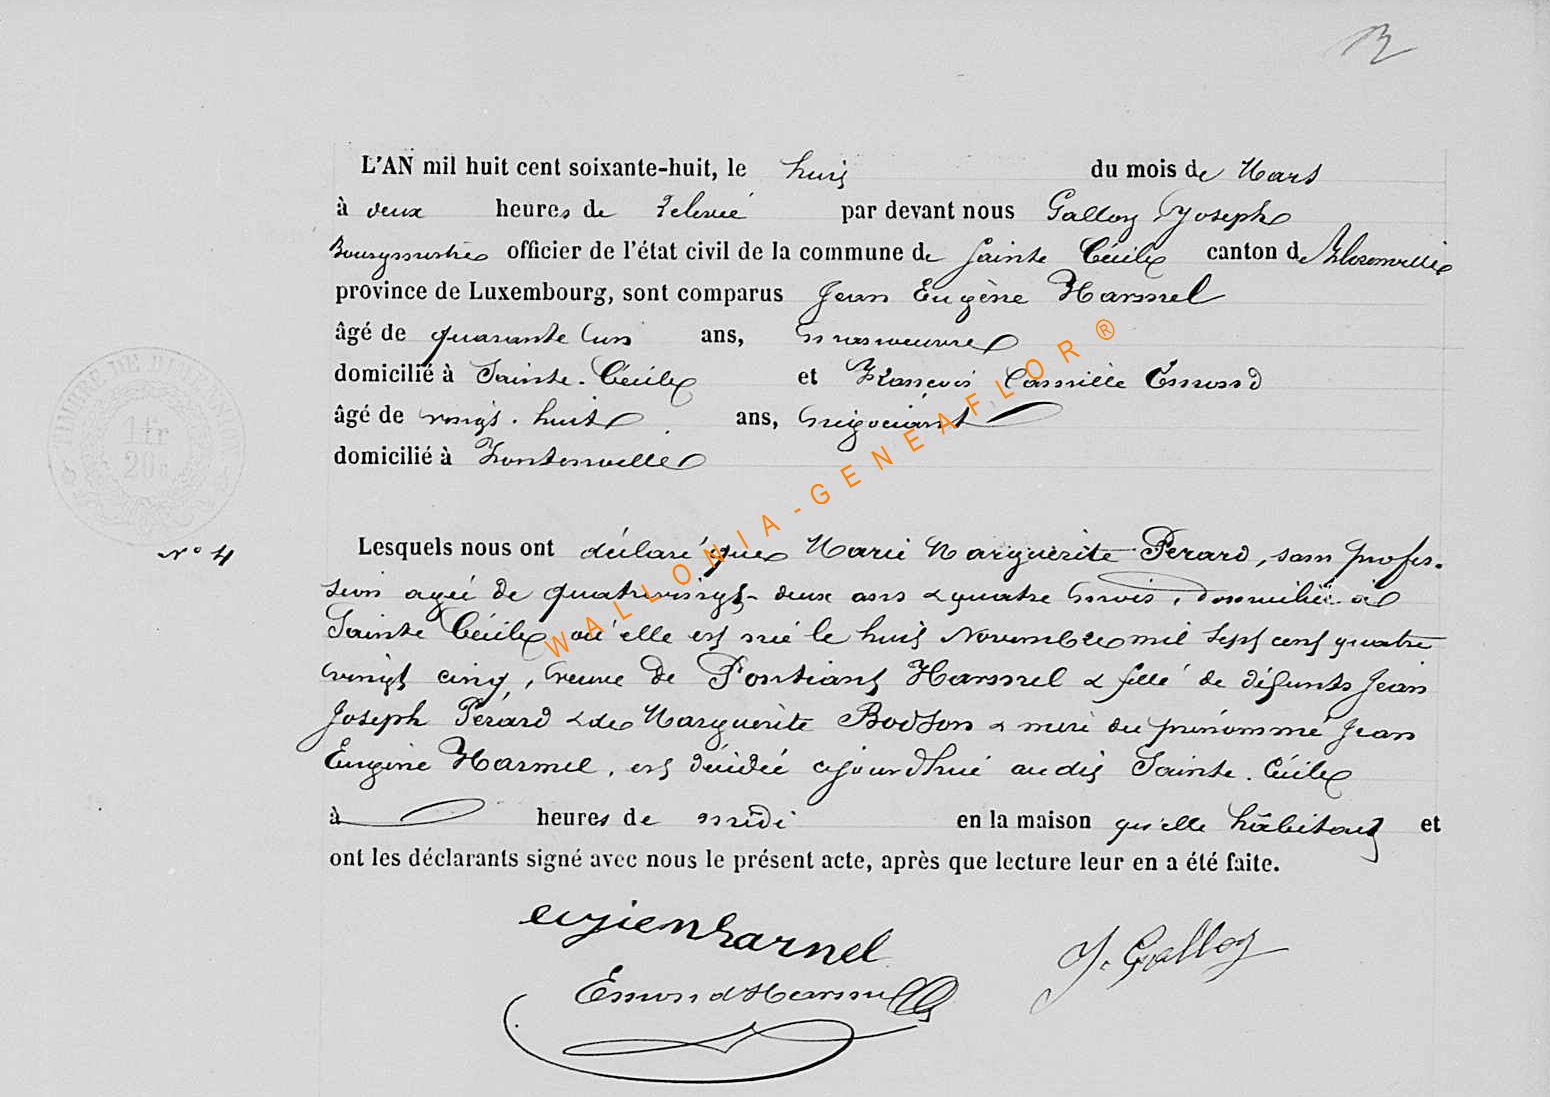 L'AN mil huit cent soixante-huit, le huit du mois de Mars
à deux heures de relevée par devant nous Galloy Joseph
Bourgmestre officier de l'état civil de la commune de Sainte Cécile canton de Florenville
province de Luxembourg, sont comparus Jean Eugène Harmel
âgé de quarante un ans, manoeuvre
domicilié à Sainte-Cécile et François Camille Emond
âgé de vingt-huit ans, négociant
domicilié à Fontenoille
N° 4
Lesquels nous ont déclaré que Marie Marguerite Perard, sans profes-
sion agée de quatrevingt-deux ans & quatre mois, domiciliée à
Sainte Cécile où elle est née le huit Novembre mil sept cent quatre
vingt cinq, veuve de Pontiant Harmel & fille de défunts Jean
Joseph Pérard & de Marguerite Bodson & mère du prénommé Jean
Eugène Harmel, est décédée ajourd'hui audit Sainte-Cécile
à heures de midi en la maison qu'elle habitait et
ont les déclarants signé avec nous le présent acte, après que lecture leur en a été faite.
eugien harmel
J. Galloy
Emond Harmel
TIMBRE DE DIMENSION
1 fr
20 c
WALLONIA-GENEAFLOR®